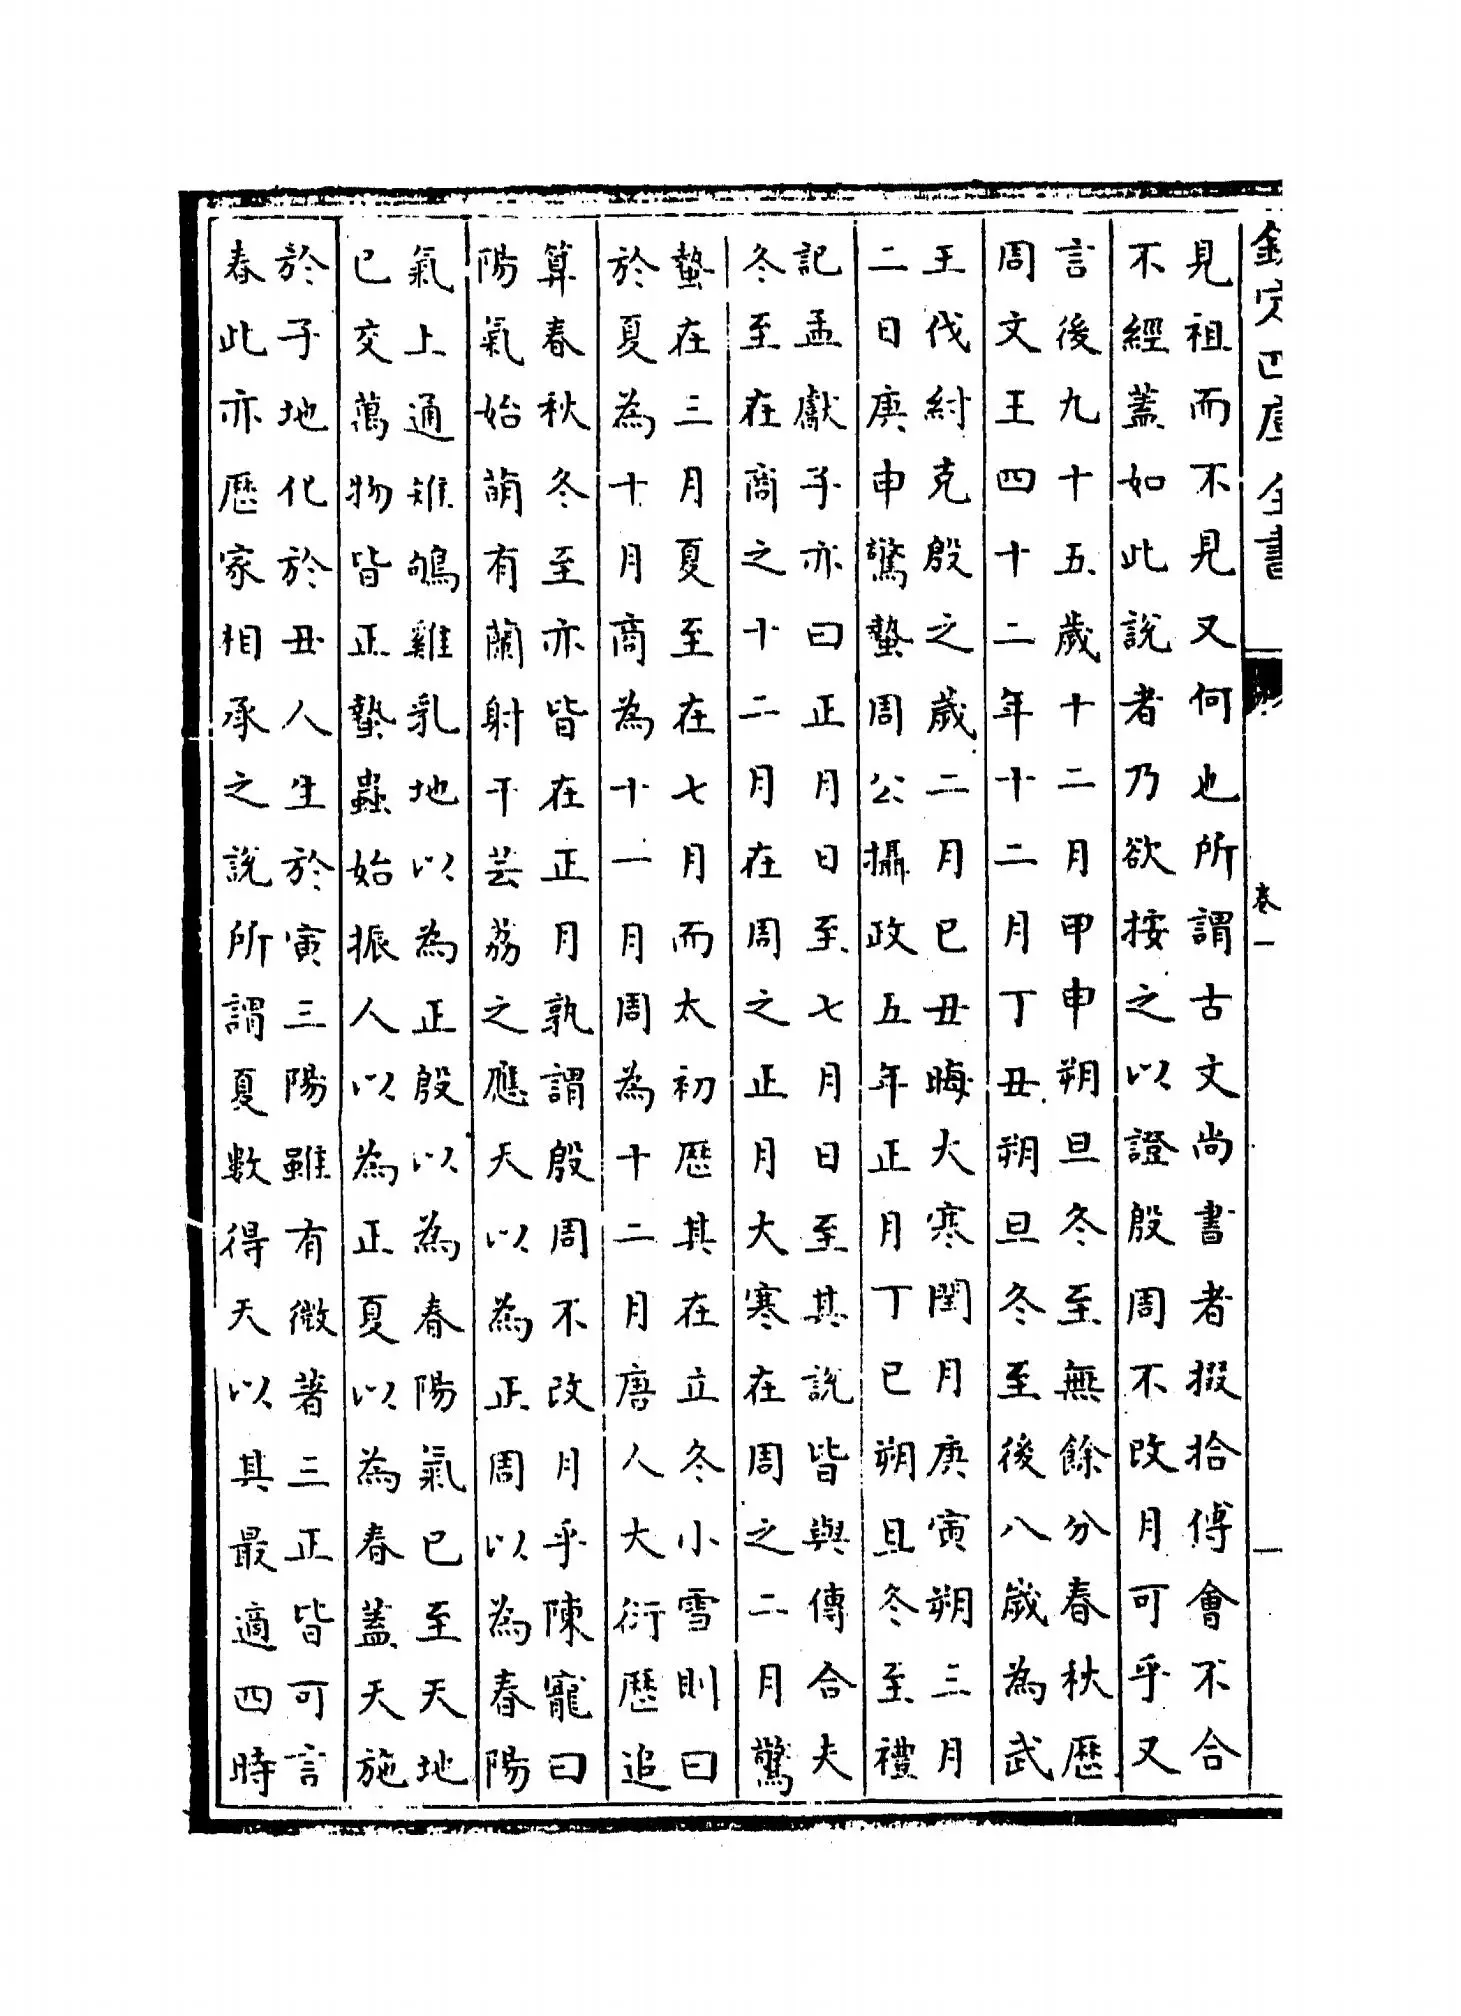 欽定四庫全書
卷一
見祖而不見又何也所謂古文尚書者掇拾傅會不合
不經蓋如此說者乃欲按之以證殷周不改月可乎又
言後九十五歲十二月甲申朔旦冬至無餘分春秋歷
周文王四十二年十二月丁丑朔旦冬至後八歲為武
王伐紂克殷之歲二月已丑晦大寒閏月庚寅朔三月
二日庚申驚蟄周公攝政五年正月丁巳朔旦冬至禮
記孟獻子亦曰正月日至七月日至其說皆與傳合夫
冬至在商之十二月在周之正月大寒在周之二月驚
蟄在三月夏至在七月而太初歷其在立冬小雪則曰
於夏為十月商為十一月周為十二月唐人大衍歷追
算春秋冬至亦皆在正月孰謂殷周不改月乎陳寵曰
陽氣始萌有蘭射干芸荔之應天以為正周以為春陽
氣上通雉雊雞乳地以為正殷以為春陽氣已至天地
已交萬物皆正蟄蟲始振人以為正夏以為春蓋天施
於子地化於丑人生於寅三陽雖有微著三正皆可言
春此亦歷家相承之說所謂夏數得天以其最適四時